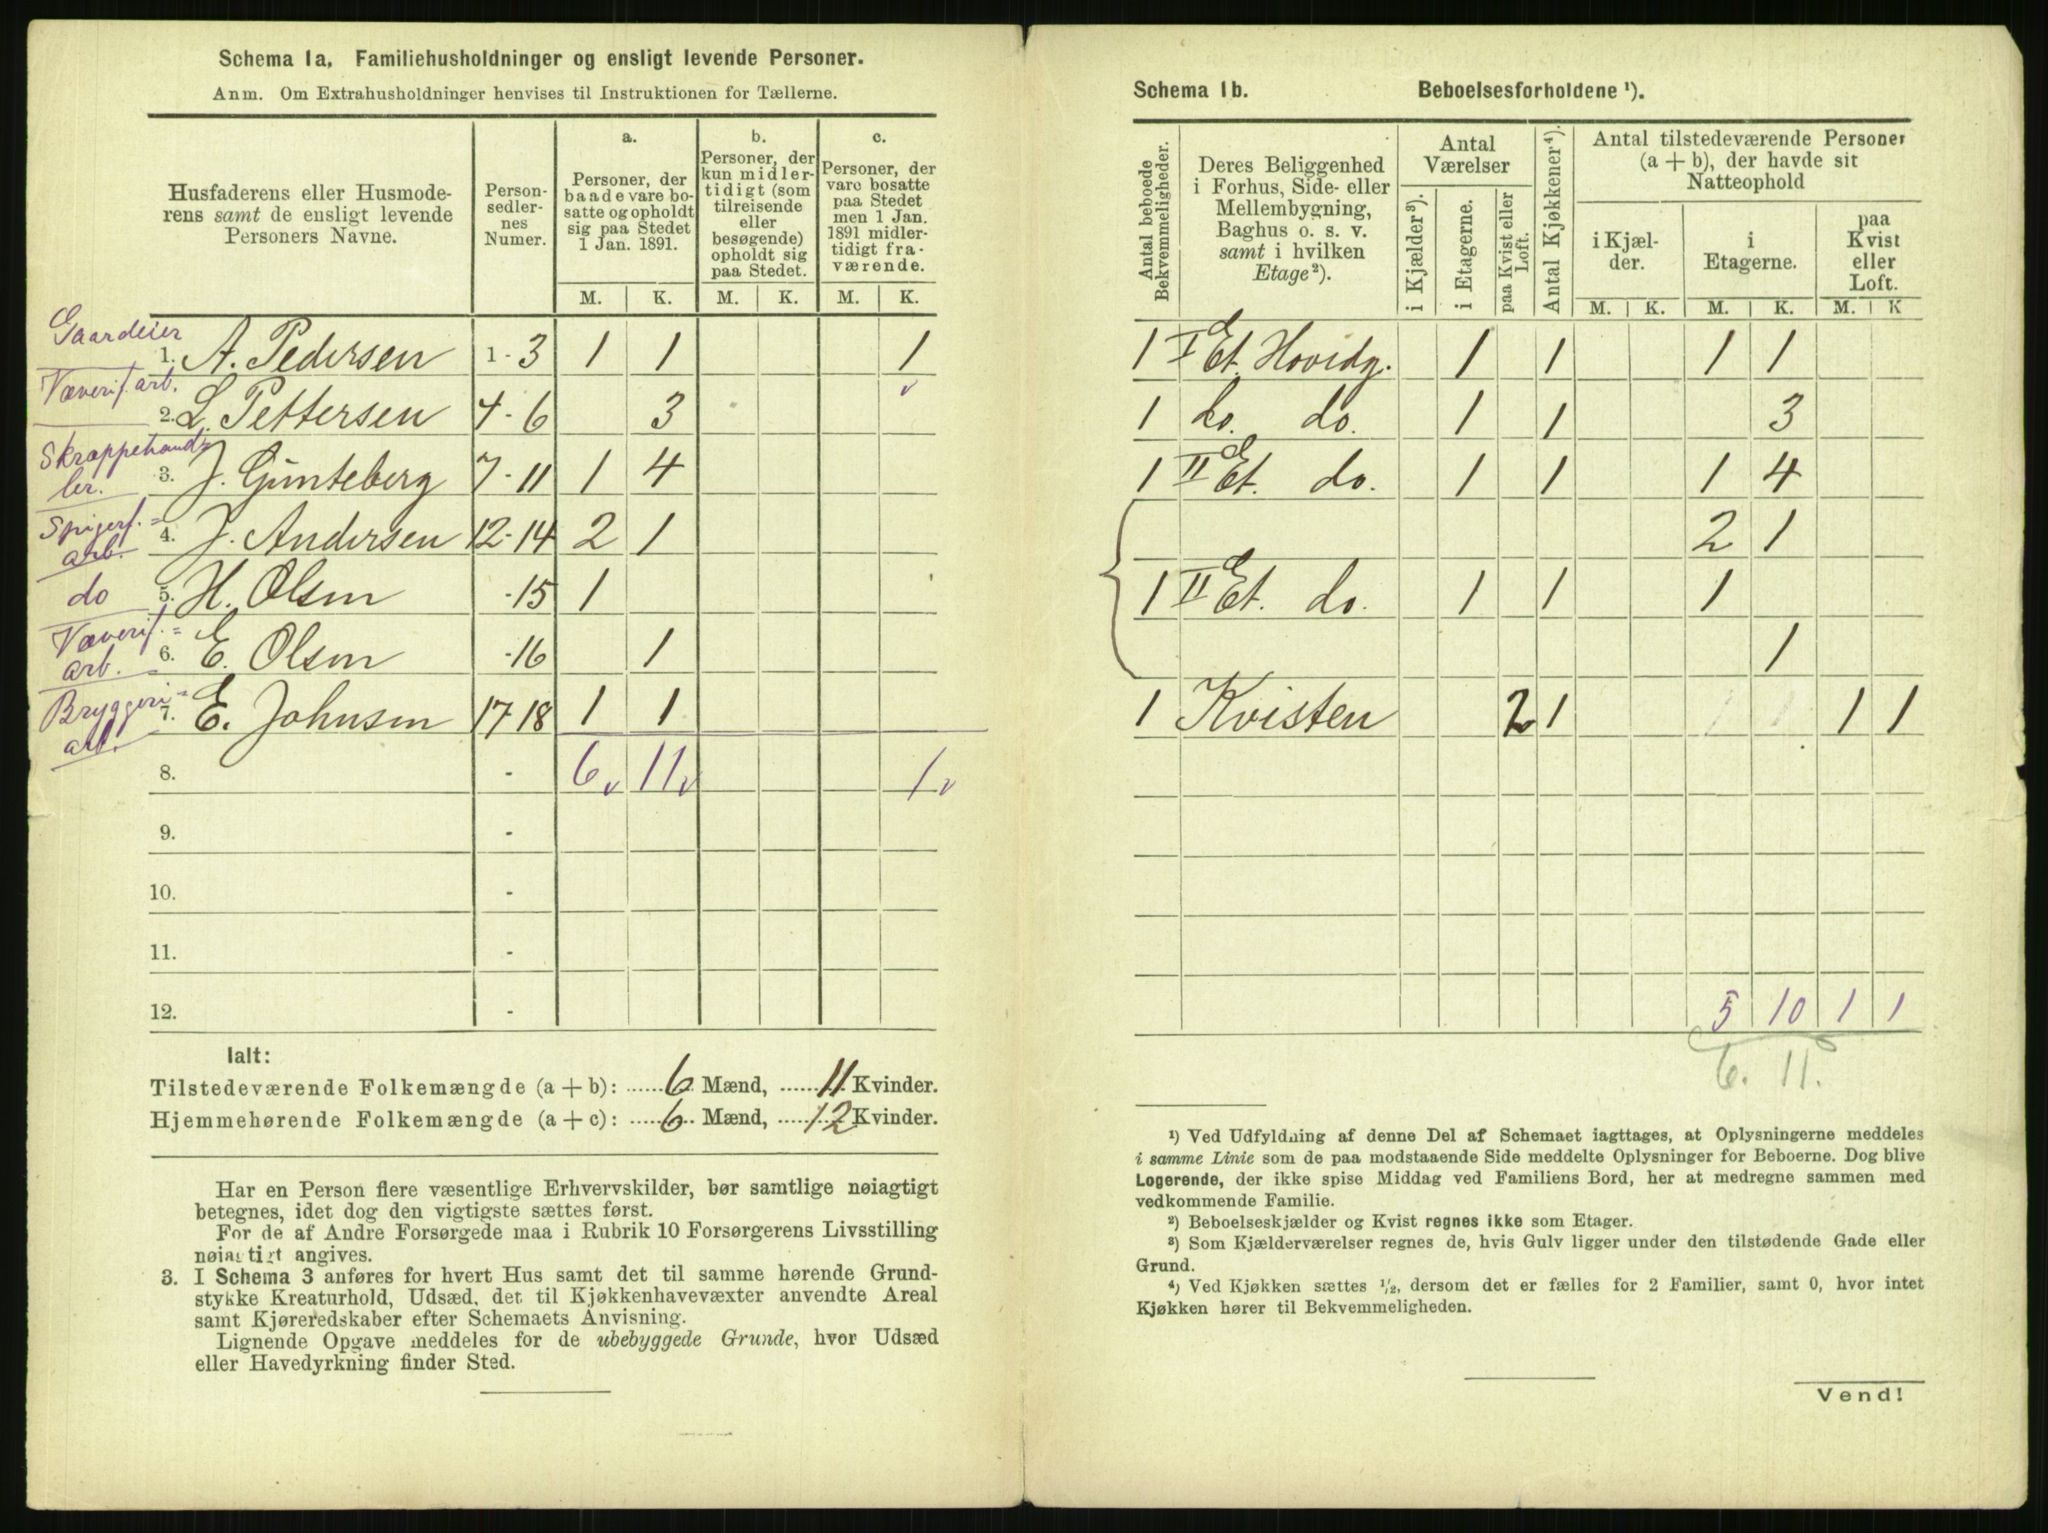 Schema 1a. Familiehusholdninger og ensligt levende Personer.
Anm. Om Extrahusholdninger henvises til Instruktionen for Tællerne.
Husfaderens eller Husmode-
rens samt de ensligt levende
Personers Navne.
Person-
sedler-
nes
Numer.
a.
Personer, der
baade vare bo-
satte og opholdt
sig paa Stedet
1 Jan. 1891.
b.
Personer, der
kun midler-
tidigt (som
tilreisende
eller
besøgende)
opholdt sig
paa Stedet.
c.
Personer, der
vare bosatte
paa Stedet
men 1 Jan.
1891 midler-
tidigt fra-
værende.
M. K. M. K. M. K.
Gaardeier
1. A. Pedersen 1-3 1 1 1
Væverif. arb.
2. L. Pettersen 4-6 3
Skrappehand-
ler.
3. J. Günteberg 7-11 1 4
Spigerf.=
arb.
4. J. Andersen 12-14 2 1
do
5. H. Olsen -15 1
Væverif.=
arb.
6. E. Olsen -16 1
Bryggeri=
arb.
7. E. Johnsen 17-18 1 1
8. - 6 11 1
9. -
10. -
11. -
12. -
Ialt:
Tilstedeværende Folkemængde (a + b): 6 Mænd, 11 Kvinder.
Hjemmehørende Folkemængde (a + c): 6 Mænd, 12 Kvinder.
Har en Person flere væsentlige Erhvervskilder, bør samtlige nøiagtigt
betegnes, idet dog den vigtigste sættes først.
For de af Andre Forsørgede maa i Rubrik 10 Forsørgerens Livsstilling
nøiagtigt angives.
3. I Schema 3 anføres for hvert Hus samt det til samme hørende Grund-
stykke Kreaturhold, Udsæd, det til Kjøkkenhavevæxter anvendte Areal
samt Kjøreredskaber efter Schemaets Anvisning.
Lignende Opgave meddeles for de ubebyggede Grunde, hvor Udsæd
eller Havedyrkning finder Sted.
Schema 1b. Beboelsesforholdene ¹).
Antal beboede
Bekvemmeligheder.
Deres Beliggenhed
i Forhus, Side- eller
Mellembygning,
Baghus o. s. v.
samt i hvilken
Etage ²).
Antal
Værelser
i Kjælder ³).
i Etagerne.
paa Kvist eller
Loft.
Antal Kjøkkener ⁴).
Antal tilstedeværende Personer
(a + b), der havde sit
Natteophold
i Kjæl-
der.
i
Etagerne.
paa
Kvist
eller
Loft.
M. K. M. K. M. K
1 I Et. Hovidg. 1 1 1 1
1 do. do. 1 1 3
1 II Et. do. 1 1 1 4
2 1
1 II Et. do. 1 1 1
1
1 Kvisten 2 1 1 1
5 10 1 1
6. 11.
¹) Ved Udfyldning af denne Del af Schemaet iagttages, at Oplysningerne meddeles
i samme Linie som de paa modstaaende Side meddelte Oplysninger for Beboerne. Dog blive
Logerende, der ikke spise Middag ved Familiens Bord, her at medregne sammen med
vedkommende Familie.
²) Beboelseskjælder og Kvist regnes ikke som Etager.
³) Som Kjælderværelser regnes de, hvis Gulv ligger under den tilstødende Gade eller
Grund.
⁴) Ved Kjøkken sættes ½, dersom det er fælles for 2 Familier, samt 0, hvor intet
Kjøkken hører til Bekvemmeligheden.
Vend!